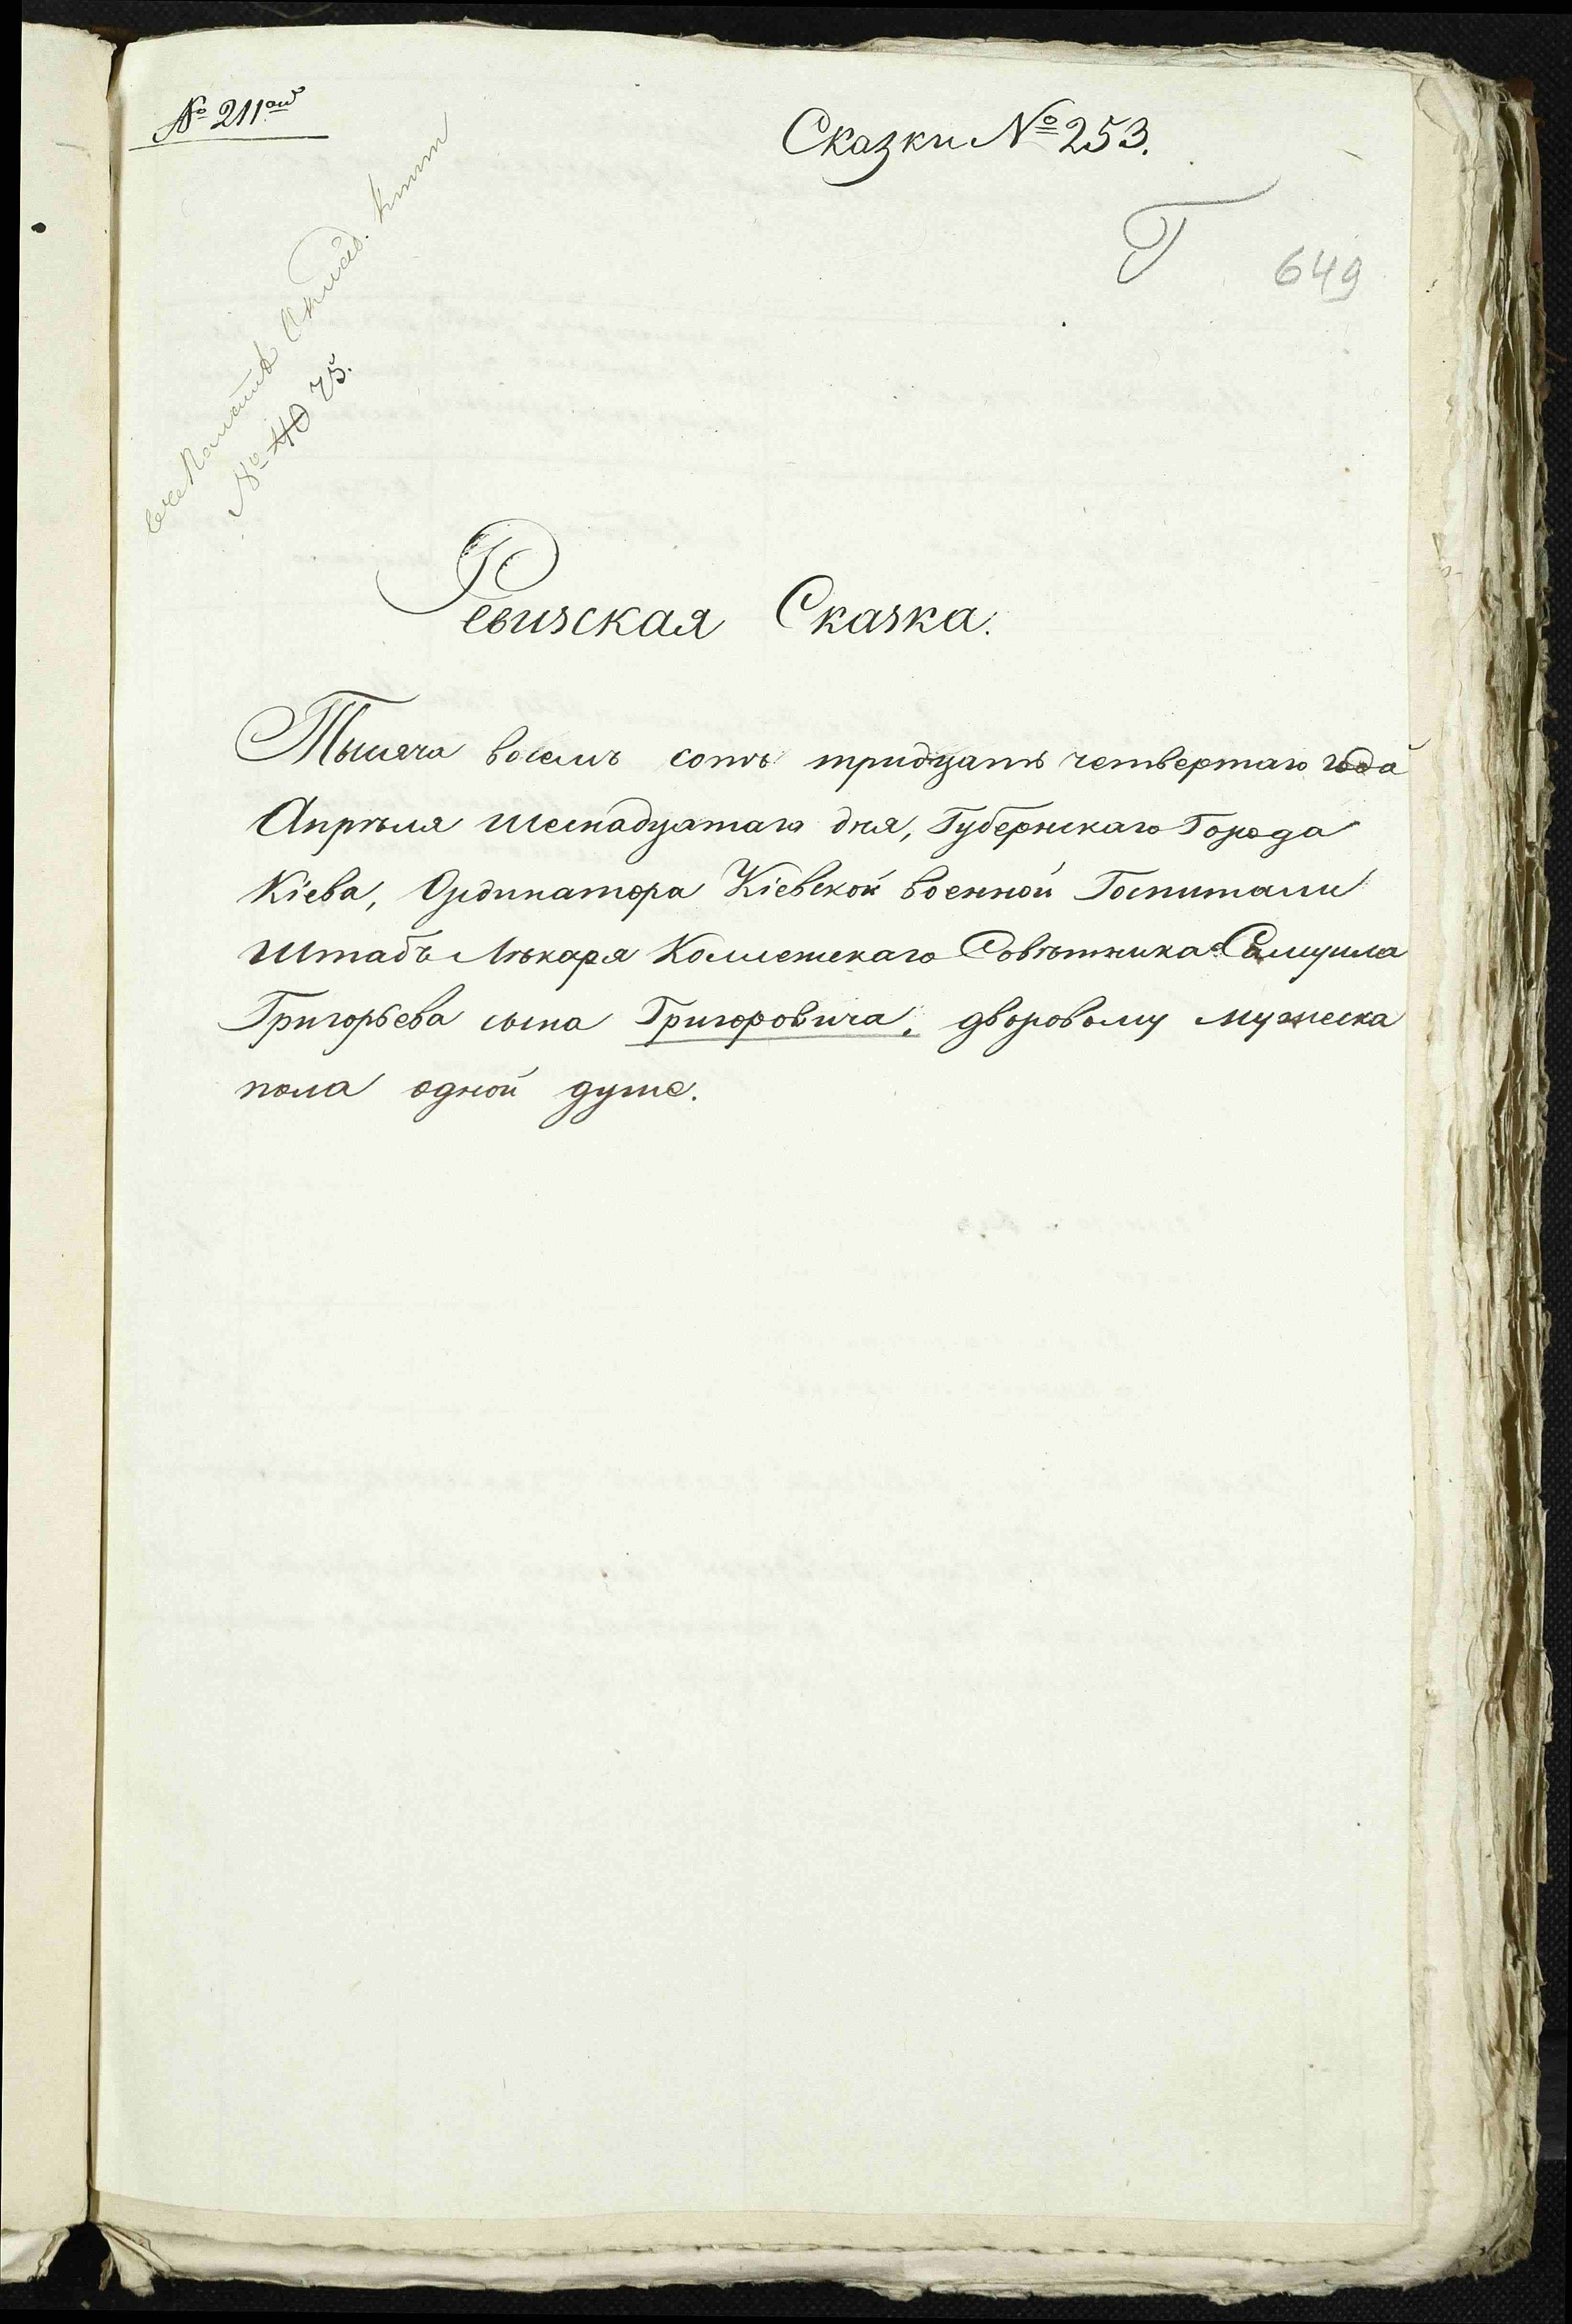 № 211ой
Сказки № 253.
Г 649
№ 40 75.
Ревизская Сказка.
Тысяча восемь сотъ тридцать четвертаго года
Апрѣля шеснадцатаго дня, Губернскаго Города
Кіева, Ординатора Кіевской военной Госпитали
Штабъ Лѣкаря Коллежскаго Совѣтника Самуила
Григорьева сына Григоровича, дворовому мужеска
пола одной душе.